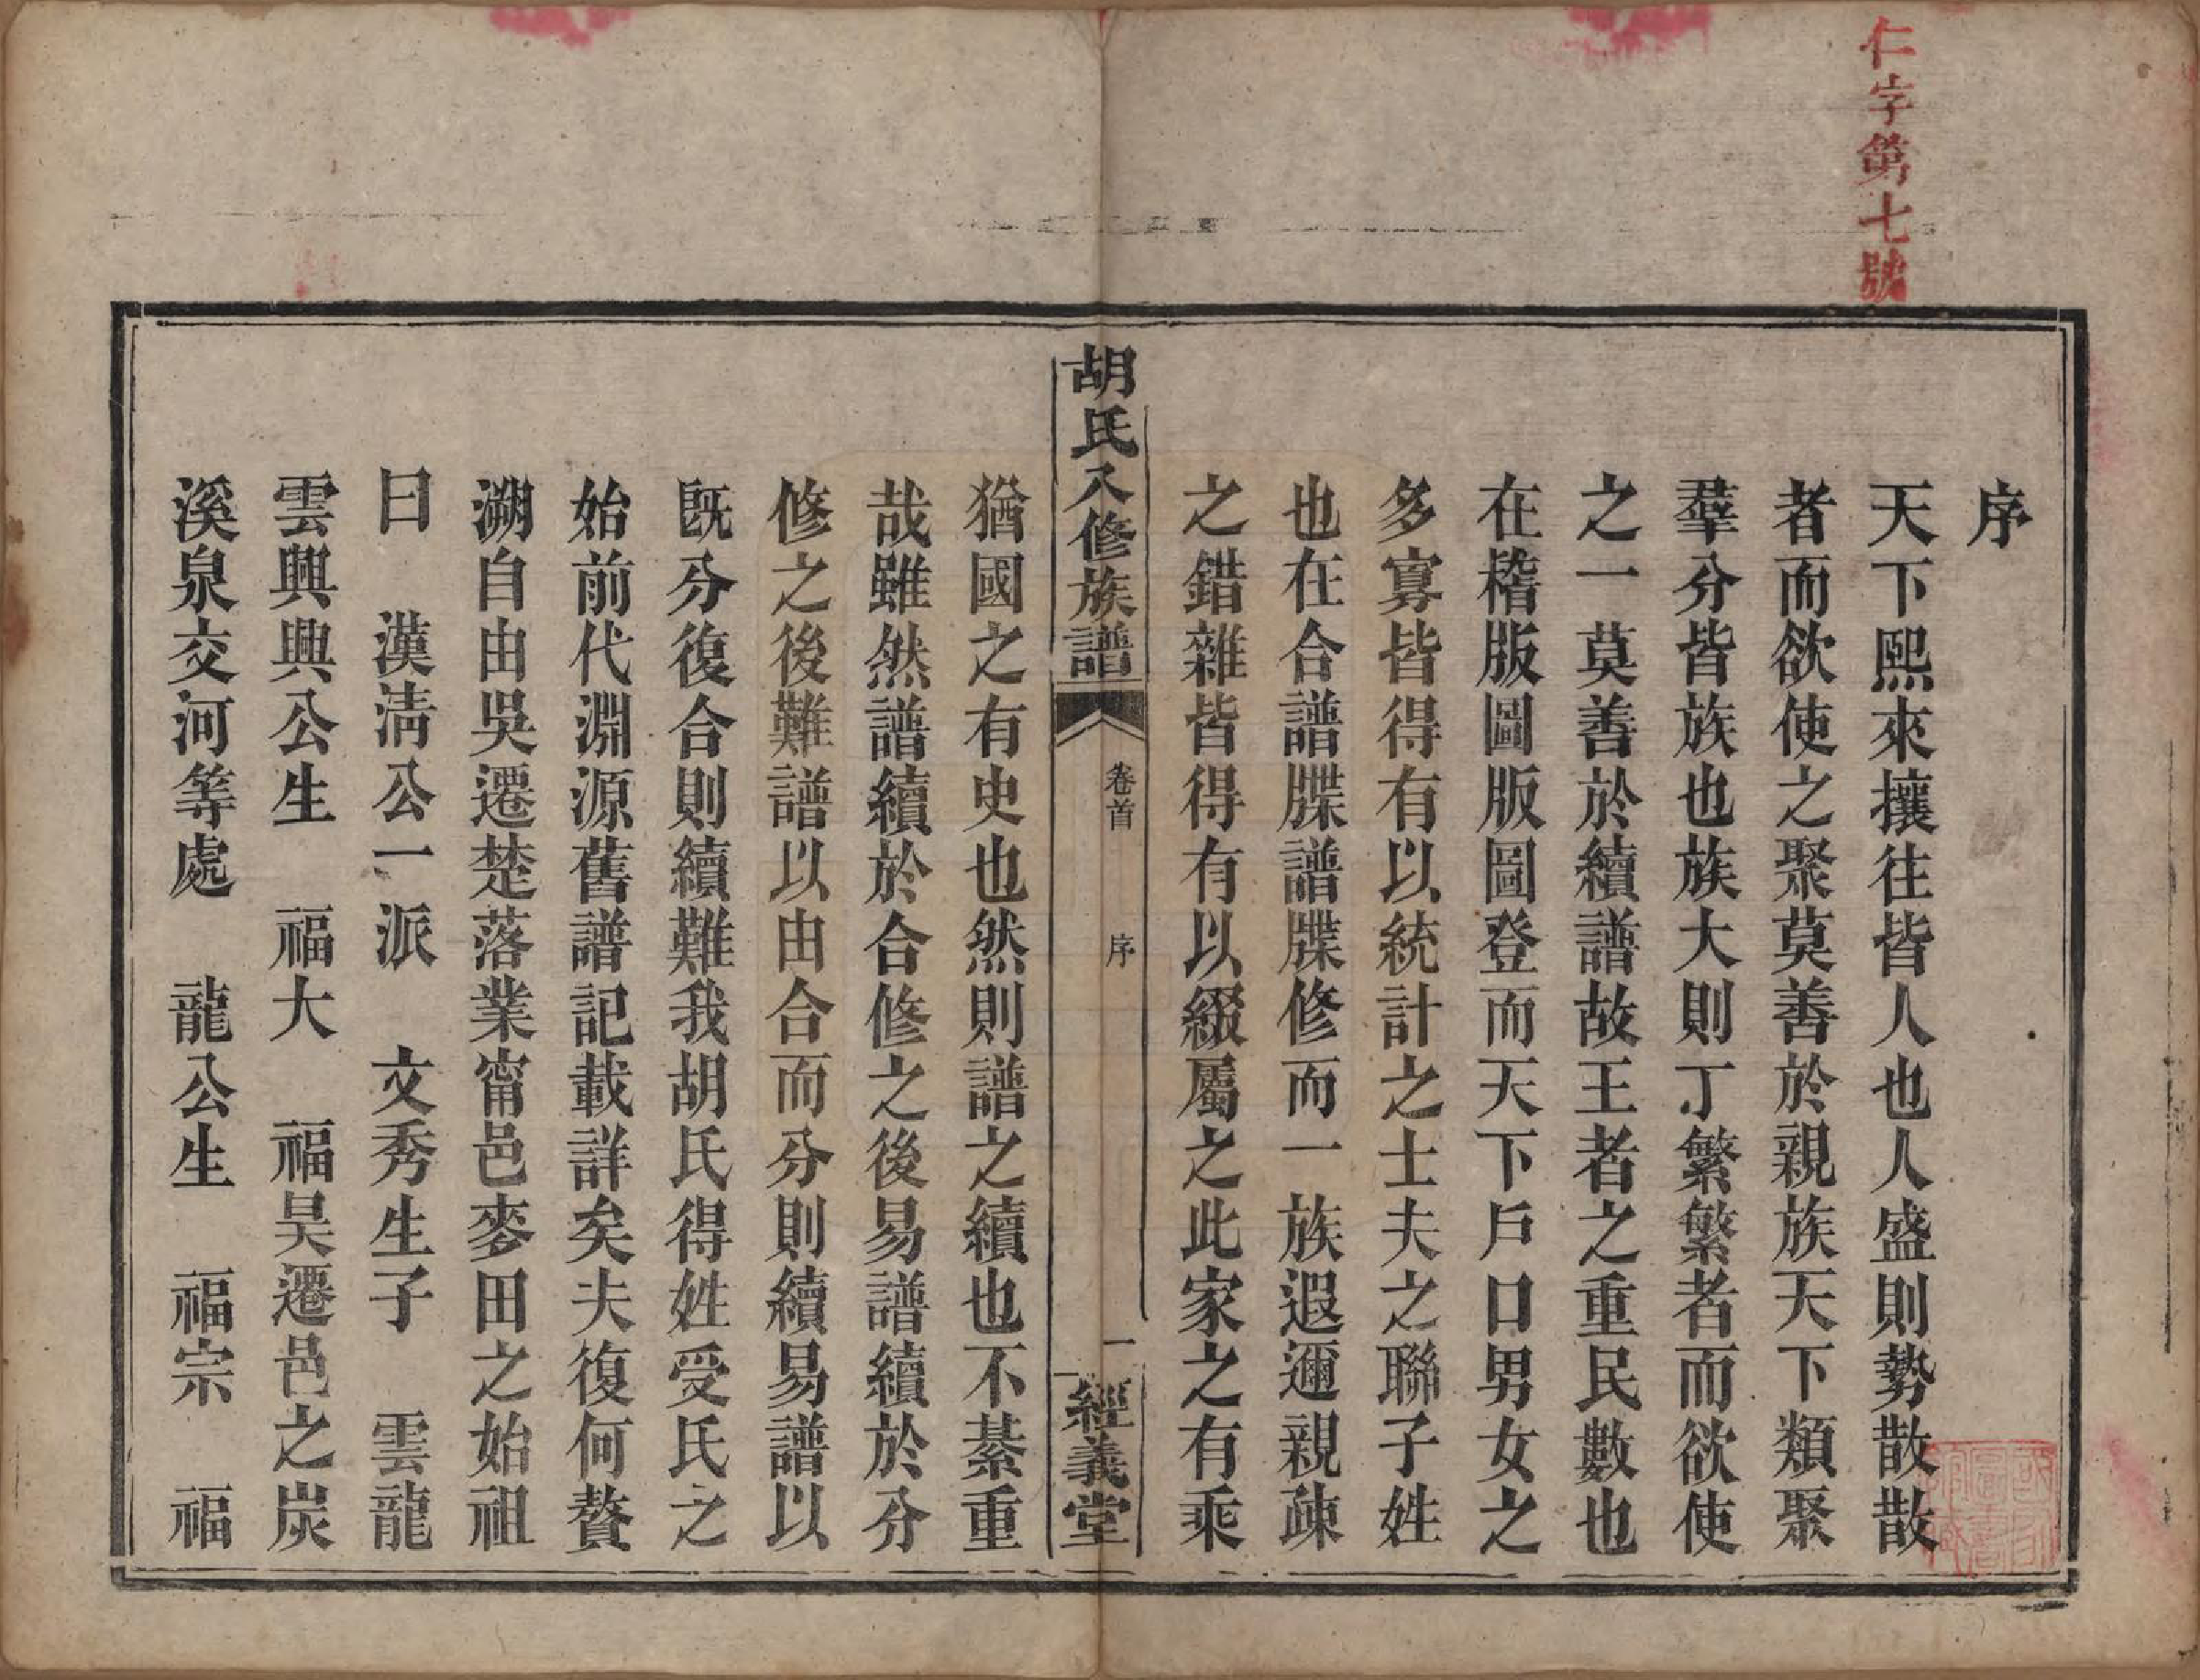 仁字第七號
序
天下熙來攘往皆人也人盛則勢散散
者而欲使之聚莫善於親族天下類聚
羣分皆族也族大則丁繁繁者而欲使
之一莫善於續譜故王者之重民數也
在稽版圖版圖登而天下戶口男女之
多寡皆得有以統計之士夫之聯子姓
也在合譜牒譜牒修而一族遐邇親疎
之錯雜皆得有以綴屬之此家之有乘
胡氏八修族譜 卷首 序 一 經義堂
猶國之有史也然則譜之續也不綦重
哉雖然譜續於合修之後易譜續於分
修之後難譜以由合而分則續易譜以
旣分復合則續難我胡氏得姓受氏之
始前代淵源舊譜記載詳矣夫復何贅
溯自由吳遷楚落業甯邑麥田之始祖
曰 漢清公一派 文秀生子 雲龍
雲興興公生 福大 福昊遷邑之炭
溪泉交河等處 龍公生 福宗 福